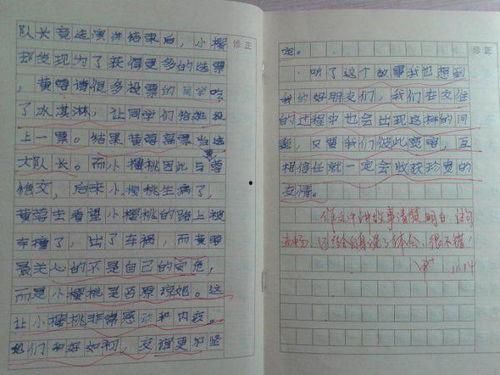 队长竞选演讲结束后，小樱
却发现为了获得更多的选票
，黄蓉请很多投票的同学吃
了冰淇淋，让同学们给她投
上一票。结果黄蓉高票当选
大队长。而小樱桃因此与黄蓉
绝交，后来小樱桃生病了，
黄蓉去看望小樱桃的路上被
车撞了，出了车祸，而黄蓉
最关心的不是自己的安危，
而是小樱桃是否原谅她。这
让小樱桃非常感动和内疚。
她们和好如初，友谊更加坚
固。
听了这个故事我也想到
我的好朋友们，我们在交往
的过程中也会出现这样的问
题，只要我们彼此宽容，互
相信任就一定会收获珍贵的
友情。
作文中讲故事清楚明白 语句
流畅，很不错！
11.14
修正
修正